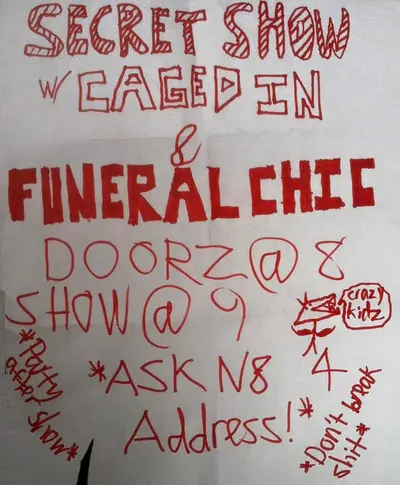 SECRET SHOW
w/ CAGED IN
&
FUNERAL CHIC
DOORZ@8
SHOW@9
crazy
kidz
*Party
after show*
*ASK N8 4
Address!*
*Don't break
shit*